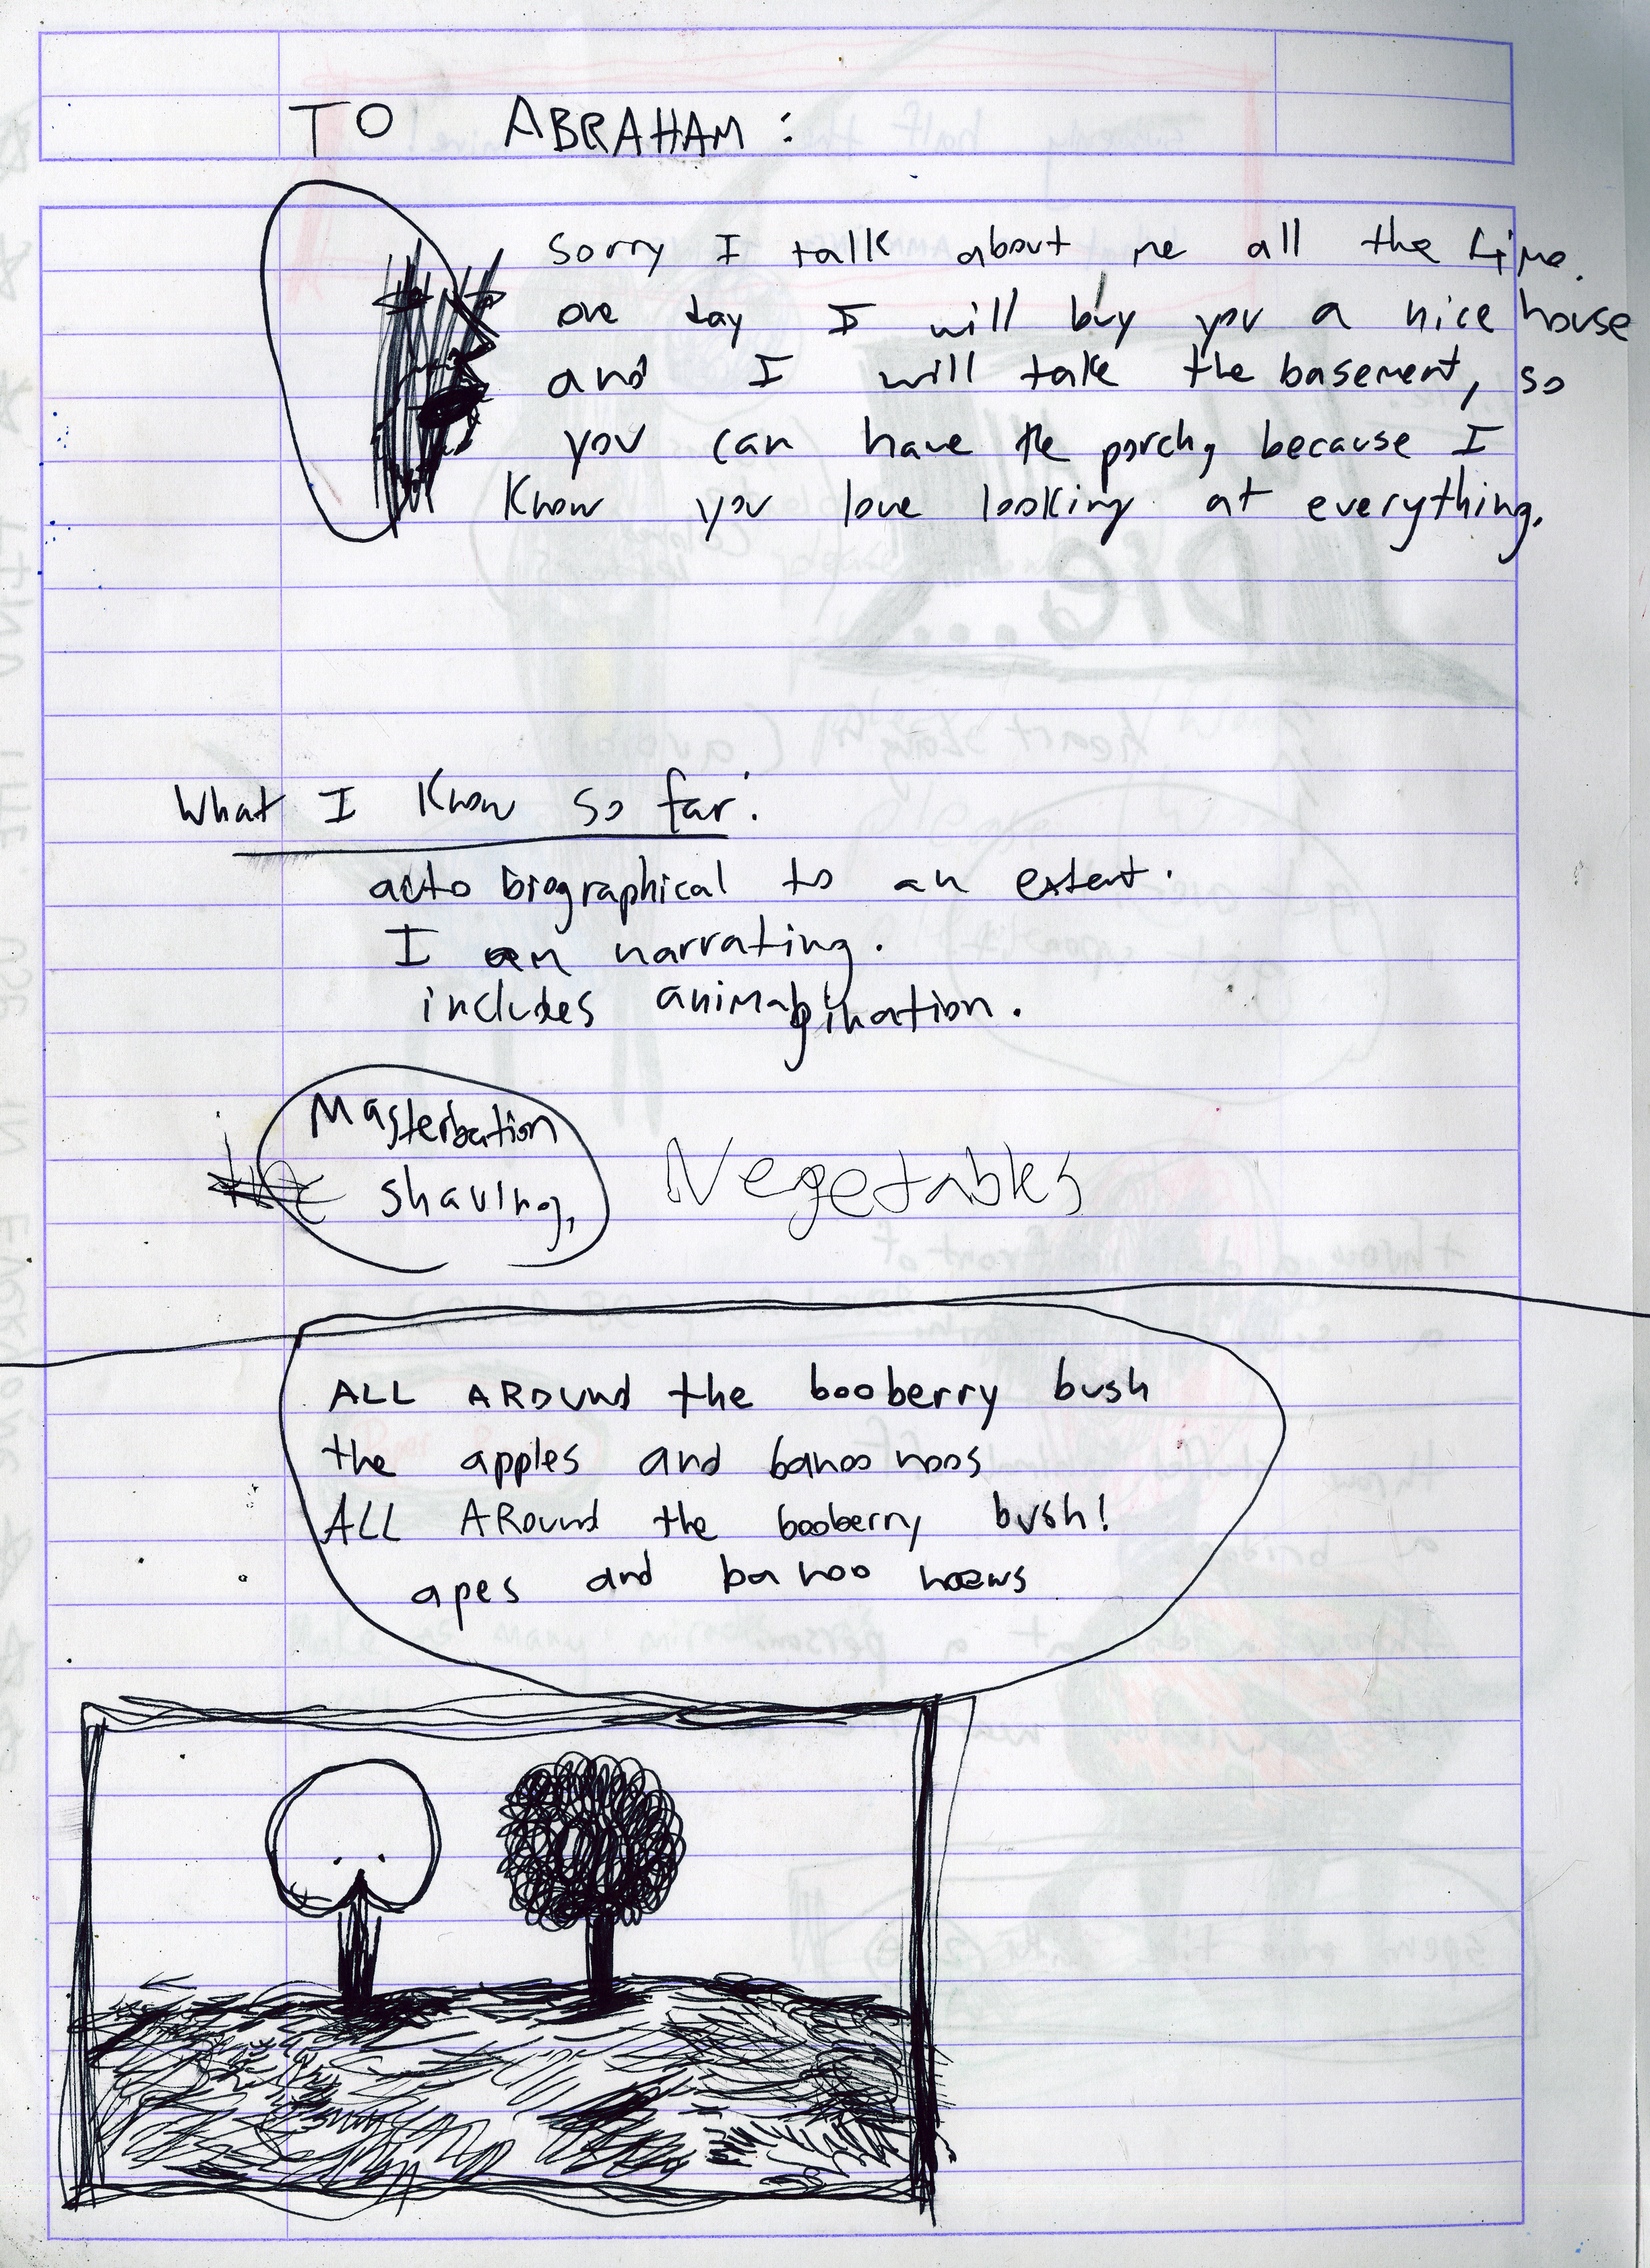 TO ABRAHAM:
Sorry I talk about me all the time.
one day I will buy you a nice house
and I will take the basement, so
you can have the porch, because I
know you love looking at everything.
What I know so far:
auto biographical to an extent.
I am narrating.
includes animagination.
Masterbation
shaving,
Vegetables
ALL AROUND the booberry bush
the apples and banoo noos
ALL AROUND the booberry bush!
apes and banoo